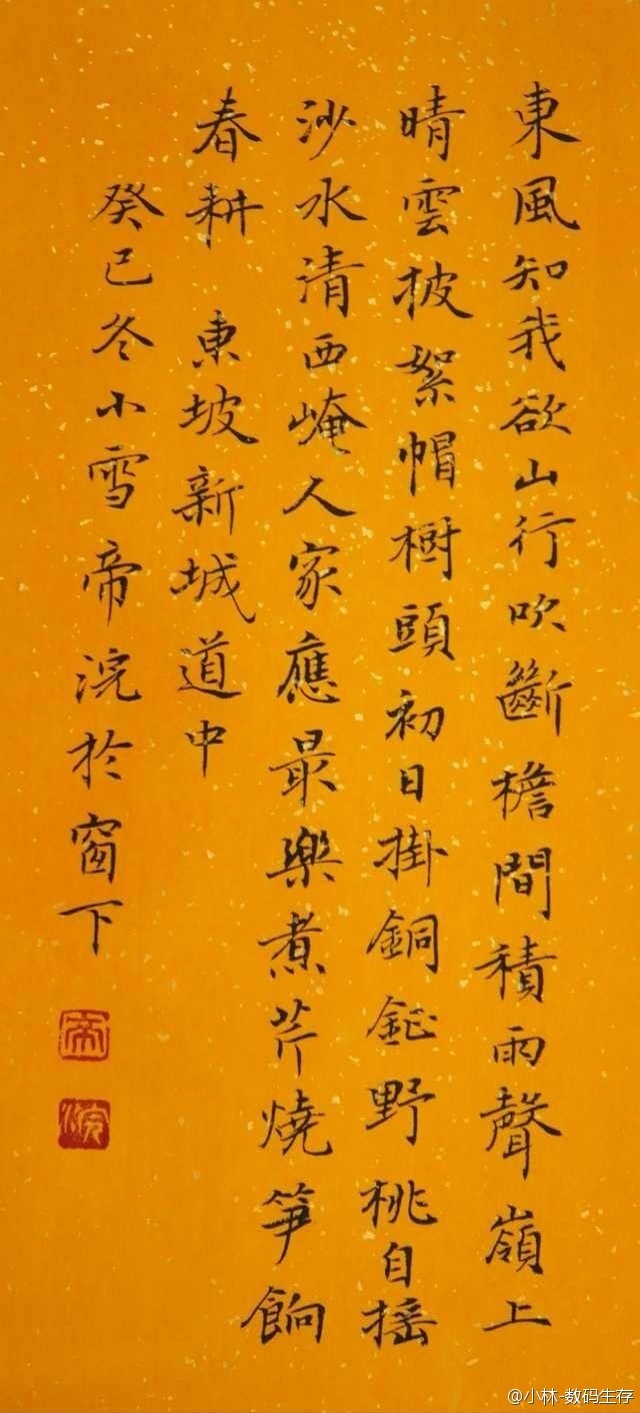 東風知我欲山行吹斷檐間積雨聲嶺上
晴雲披絮帽樹頭初日掛銅鉦野桃自搖
沙水清西崦人家應最樂煮芹燒笋餉
春耕 東坡新城道中
癸巳冬小雪帝浣於窗下
帝
浣
@小林-数码生存